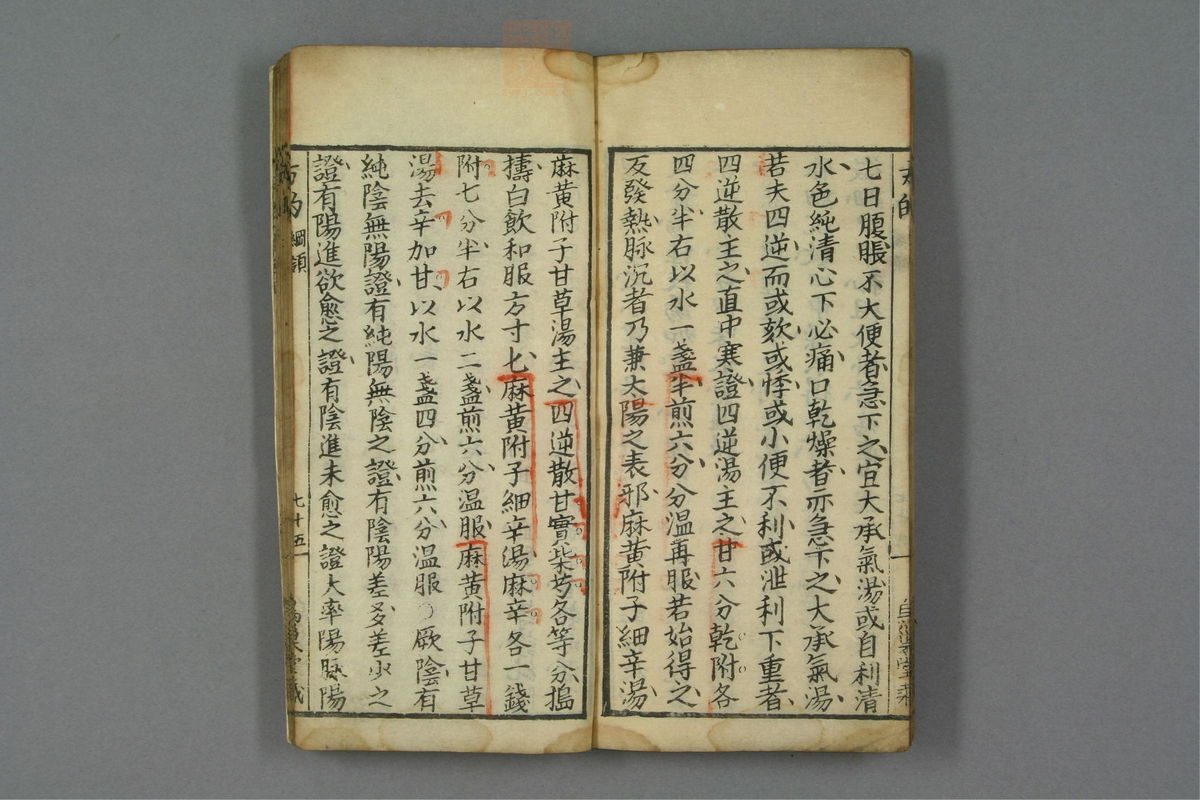 七日腹脹不大便者急下之宜大承氣湯或自利清
水色純清心下必痛口乾燥者亦急下之大承氣湯
若夫四逆而或欬或悸或小便不利或泄利下重者
四逆散主之直中寒證四逆湯主之甘六分乾附各
四分半右以水一盞半煎六分分温再服若始得之
反發熱脉沉者乃兼太陽之表邪麻黄附子細辛湯
麻黄附子甘草湯主之四逆散甘實柴芍各等分搗
擣白飲和服方寸匕麻黄附子細辛湯麻辛各一錢
附七分半右以水二盞煎六分温服麻黄附子甘草
湯去辛加甘以水一盞四分煎六分温服〇厥陰有
純陰無陽證有純陽無陰之證有陰陽差多差少之
證有陽進欲愈之證有陰進未愈之證大率陽脉陽
方的 綱領
七十五